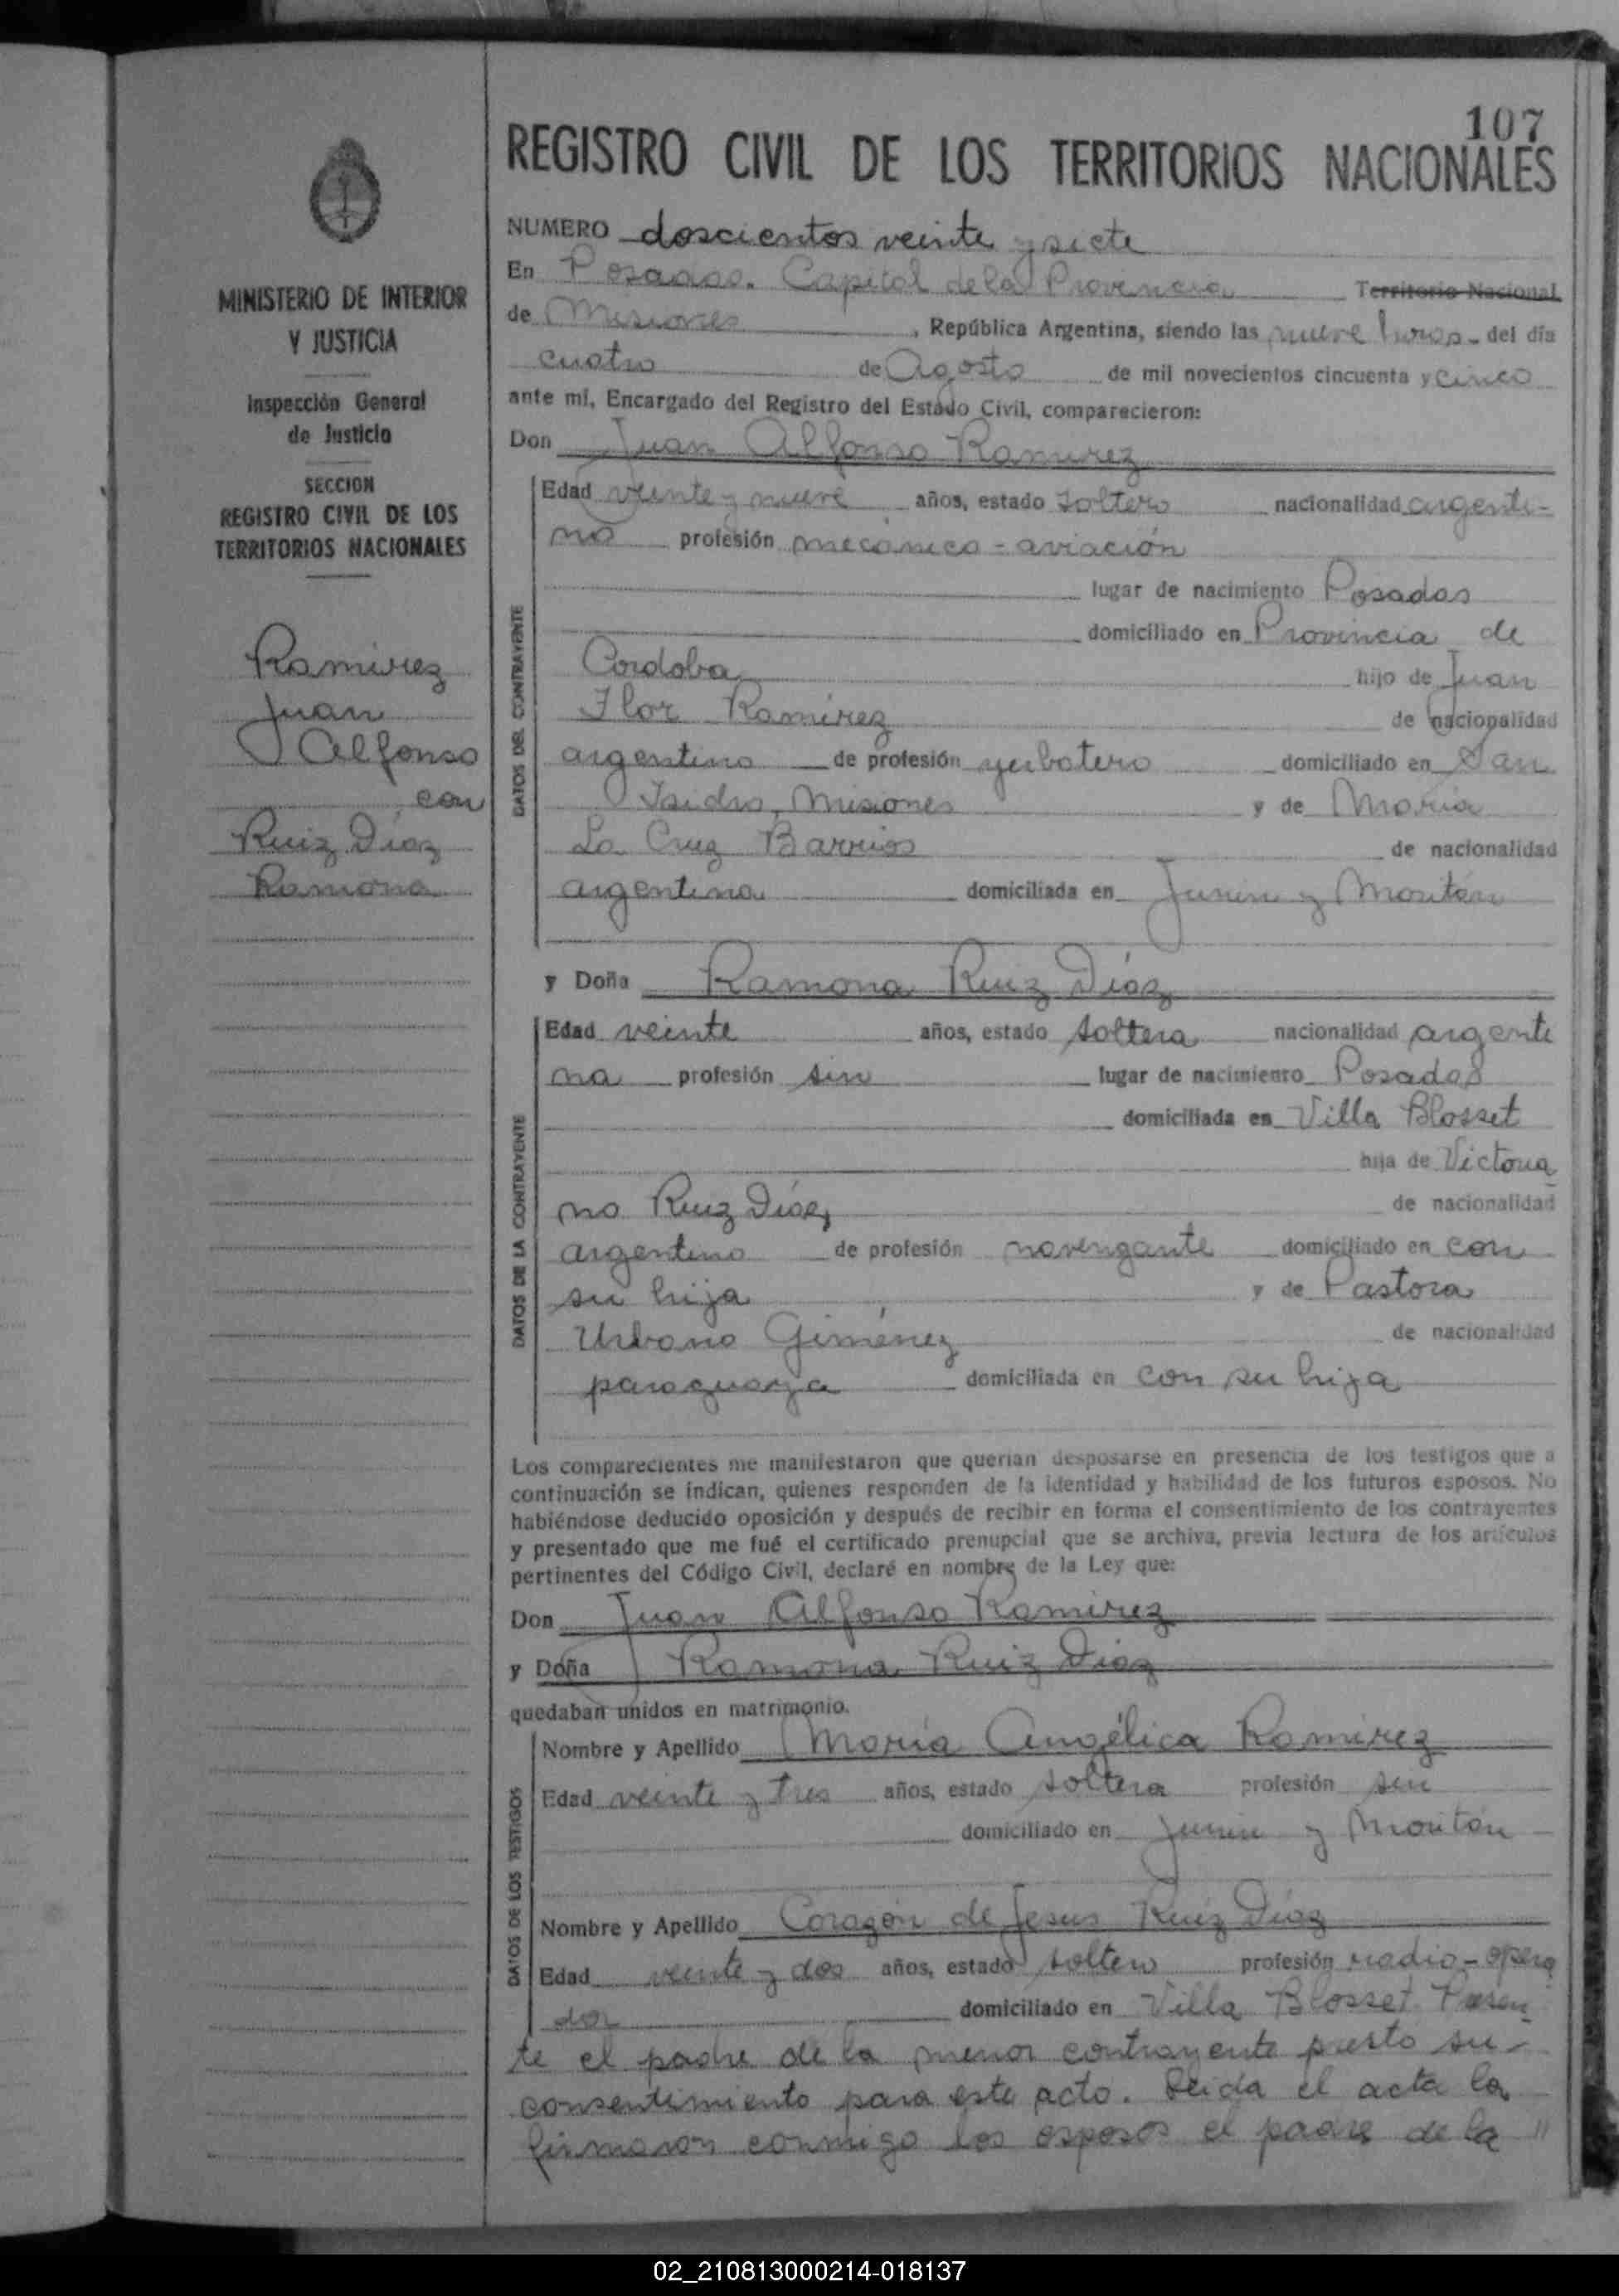 107
REGISTRO CIVIL DE LOS TERRITORIOS NACIONALES
MINISTERIO DE INTERIOR
Y JUSTICIA
Inspección General
de Justicia
SECCION
REGISTRO CIVIL DE LOS
TERRITORIOS NACIONALES
Ramirez
Juan
Alfonso
con
Ruiz Díaz
Ramona
NUMERO doscientos veinte y siete
En Posadas. Capital de la Provincia Territorio Nacional
de Misiones, República Argentina, siendo las nueve horas - del día
cuatro de Agosto de mil novecientos cincuenta y cinco
ante mí, Encargado del Registro del Estado Civil, comparecieron:
Don Juan Alfonso Ramirez
DATOS DEL CONTRAYENTE
Edad veinte y nueve años, estado soltero nacionalidad argenti-
no profesión mecánico - aviación
lugar de nacimiento Posadas
domiciliado en Provincia de
Cordoba hijo de Juan
Flor Ramírez de nacionalidad
argentino de profesión yerbatero domiciliado en San
Isidro, Misiones y de María
La Cruz Barrios de nacionalidad
argentina domiciliada en Junin y
y Doña Ramona Ruiz Díaz
DATOS DE LA CONTRAYENTE
Edad veinte años, estado soltera nacionalidad argenti
na profesión sin lugar de nacimiento Posadas
domiciliada en Villa Blosset
hija de Victoria
no Ruiz Díaz de nacionalidad
argentino de profesión navengante domiciliado en con
su hija y de Pastora
Urbana Giménez de nacionalidad
paraguaya domiciliada en con su hija
Los comparecientes me manifestaron que querían desposarse en presencia de los testigos que a
continuación se indican, quienes responden de la identidad y habilidad de los futuros esposos. No
habiéndose deducido oposición y después de recibir en forma el consentimiento de los contrayentes
y presentado que me fué el certificado prenupcial que se archiva, previa lectura de los artículos
pertinentes del Código Civil, declaré en nombre de la Ley que:
Don Juan Alfonso Ramirez
y Doña Ramona Ruiz Díaz
quedaban unidos en matrimonio.
DATOS DE LOS TESTIGOS
Nombre y Apellido María Angélica Ramírez
Edad veinte y tres años, estado soltera profesión sin
domiciliado en Junin y
Nombre y Apellido Corazón de Jesus Ruiz Díaz
Edad veinte y dos años, estado soltero profesión radio-opera
dor domiciliado en Villa Blosset Presen
te el padre de la menor contrayente presto su
consentimiento para este acto. Leida el acta la
firmaron conmigo los esposos el padre de la "
02_210813000214-018137